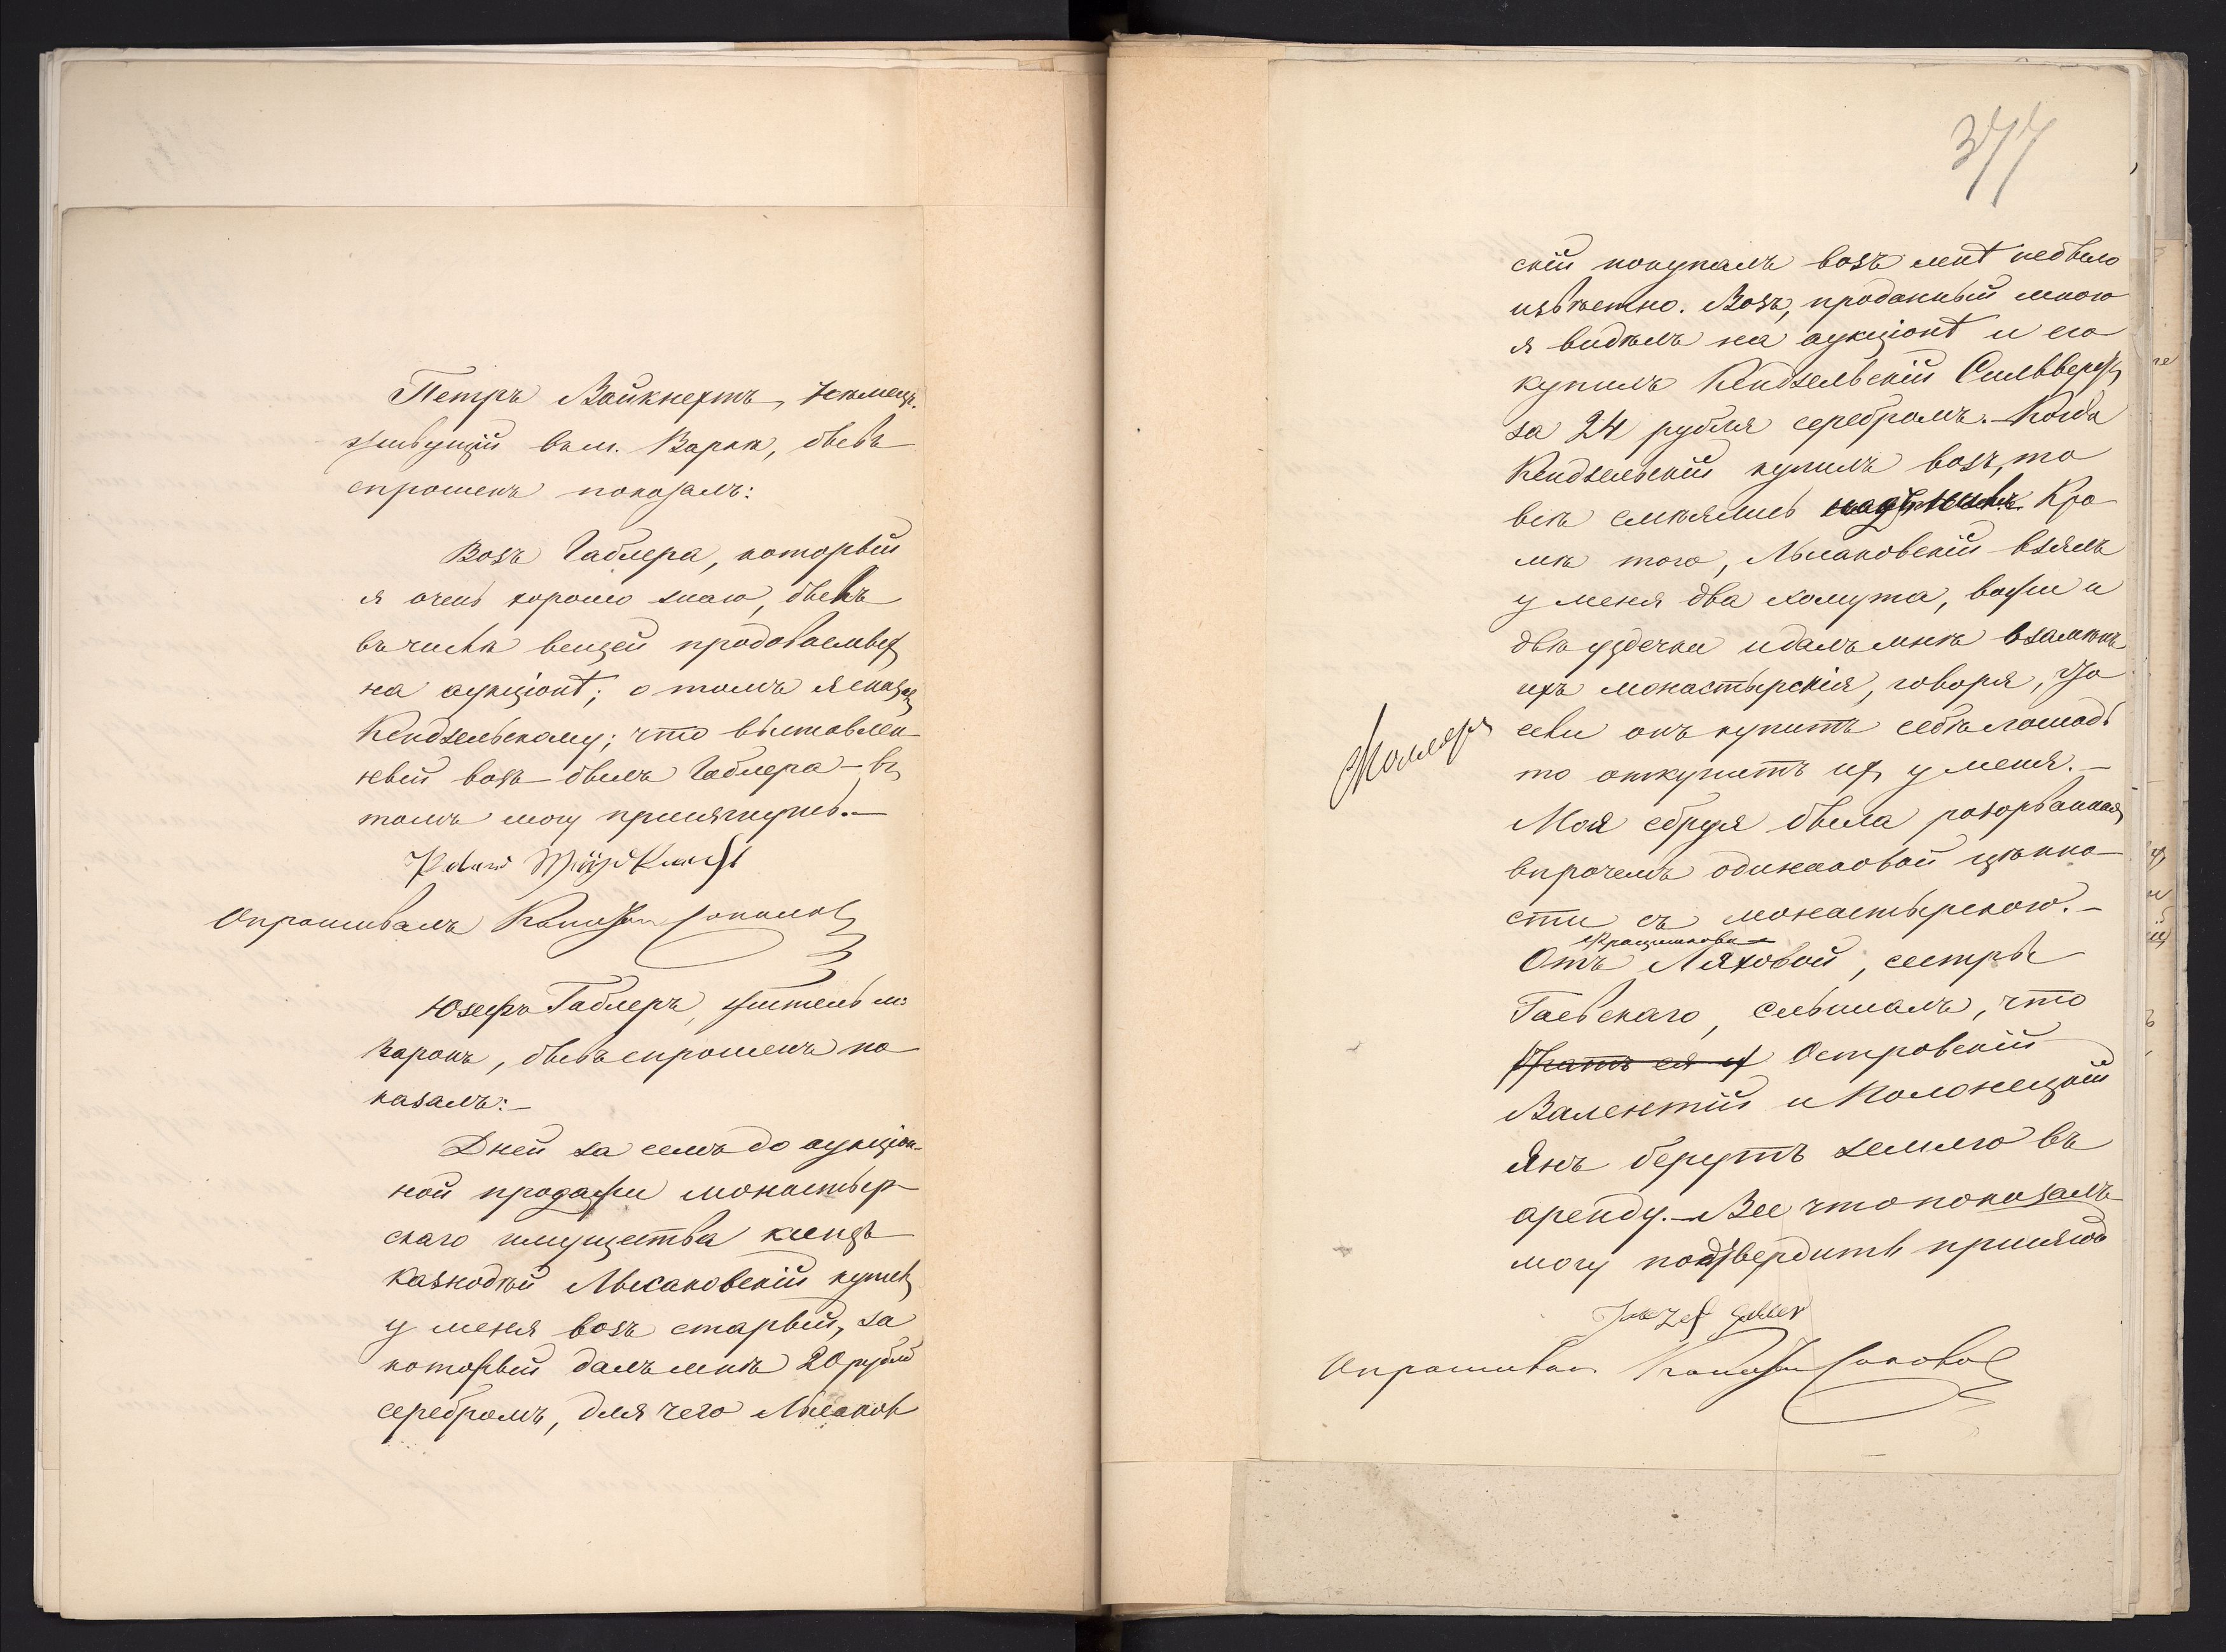 Петръ Вайкнехтъ, Немецъ.
живущій въ м. Варка, бывъ
спрошенъ показалъ:
Возъ Габлера, который
я очень хорошо знаю, былъ
въ числѣ вещей продоваемыхъ
на аукціонѣ; о томъ я сказалъ
Кендзельскому; что выставлен-
ный возъ былъ Габлера – въ
томъ могу присягнуть.—
Опрашивалъ Капитанъ
Юзефъ Габлеръ, житель м:
Варокъ, бывъ спрошенъ по
казалъ:—
Дней за семъ до аукціон-
ной продажи монастыр-
скаго имущества ксендзъ
казнодѣй Лысаковскій купилъ
у меня возъ старый, за
который далъ мнѣ 20 рублей
серебромъ, для чего Лысаков
377
скій покупалъ возъ мнѣ небыло
извѣстно. Возъ, проданный мною
я видѣлъ на аукціонѣ и его
купилъ Кендзельскій Сильвере
за 24 рубля серебромъ.— Когда
Кендзельскій купилъ возъ, то
всѣ смѣялись надъ нимъ. Кро
мѣ того, Лысаковскій взялъ
у меня два хомута, вожжи и
двѣ уздечки и далъ мнѣ взамѣнъ
ихъ монастырскія, говоря, что
если онъ купитъ себѣ лошадь
то откупитъ ихъ у меня.—
Моя сбруя была разорванная
впрочемъ одинаковой цѣнно-
сти съ монастырскою.—
Отъ Ляховой, сестры
Гаевскаго, слышалъ, что
братъ ея и Островскій
Валентій и Колонецкій
Янъ берутъ землю въ
аренду.— Все что показалъ
могу подтвердить присягой
Juozef Gabler
Опрашивалъ Капитанъ